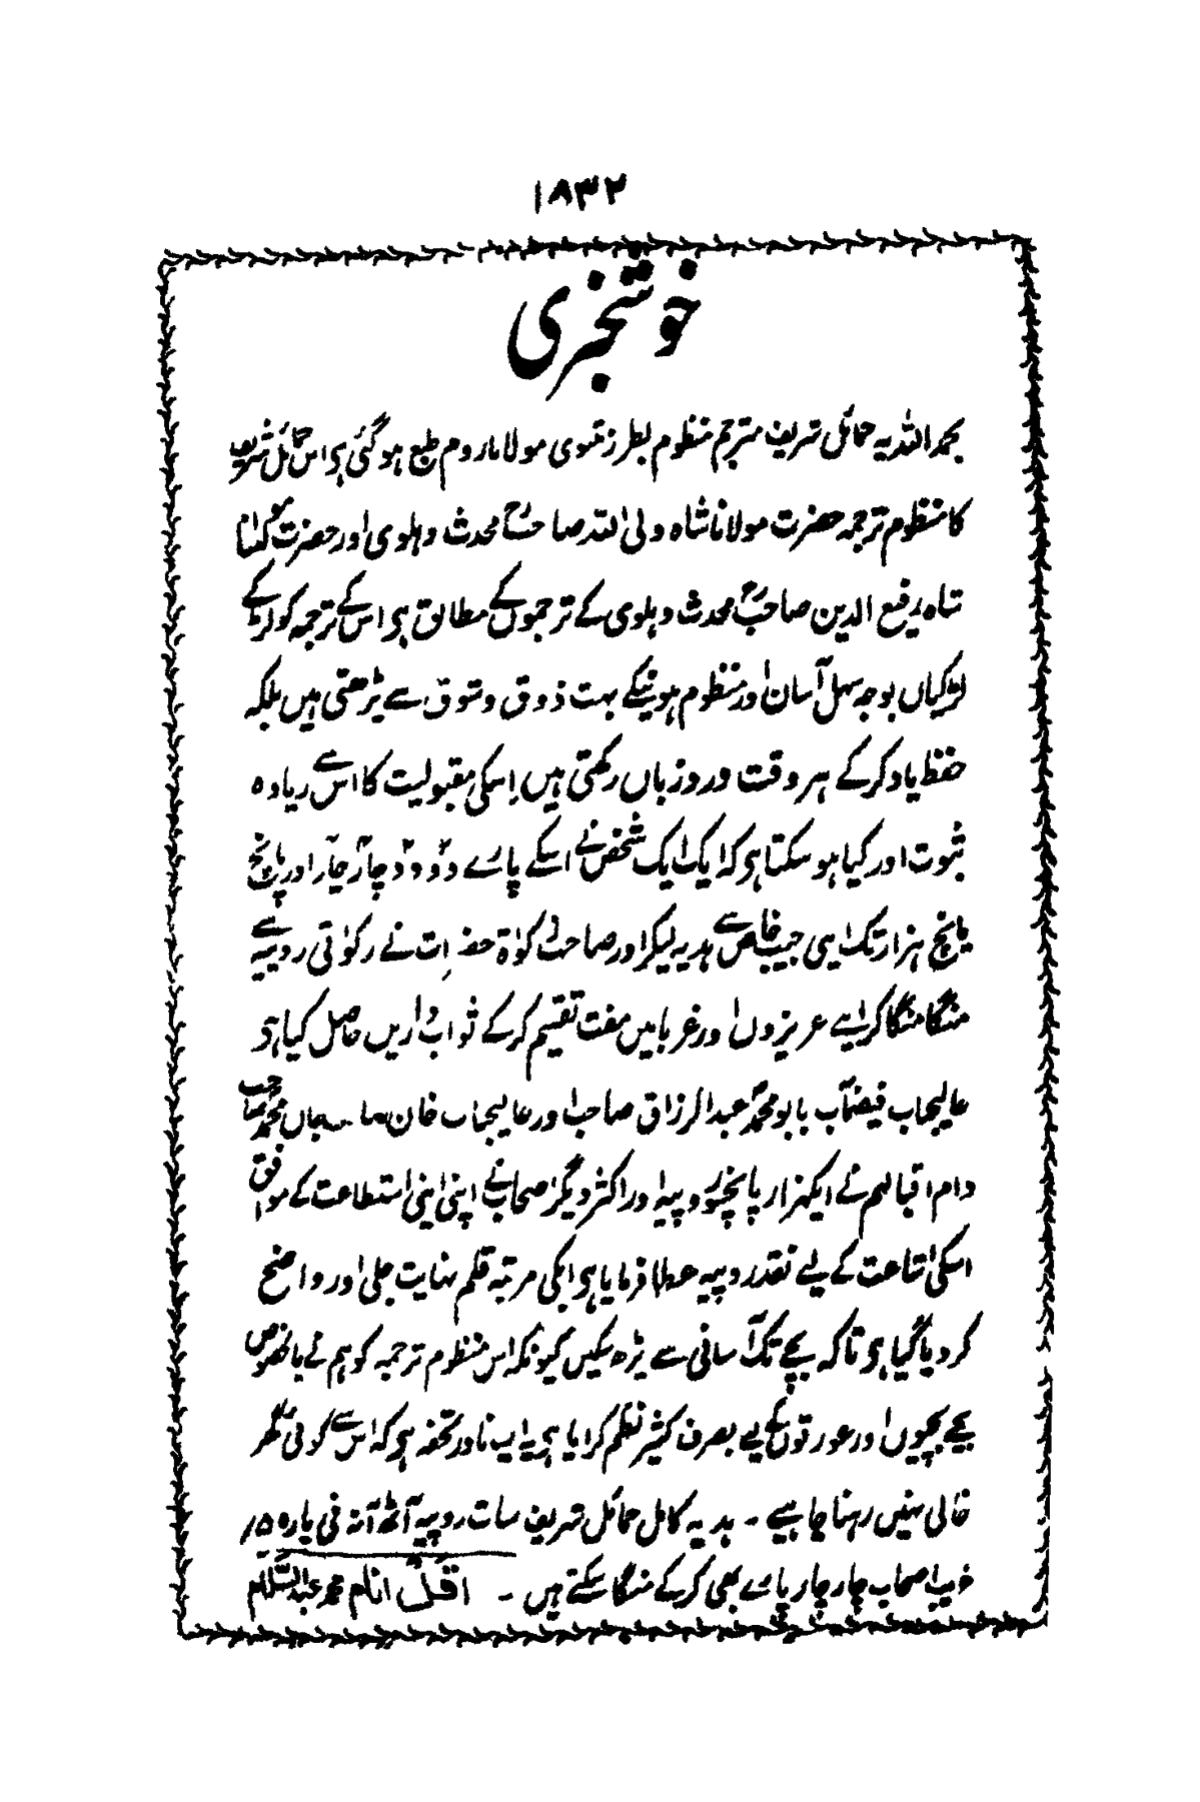 ۱۸۳۲
خوشخبری
بحمد اللہ یہ حمائل شریف مترجم منظوم بطرز مثنوی مولانا روم طبع ہو گئی ہی اس حمائل شریف
کا منظوم ترجمہ حضرت مولانا شاہ ولی اللہ صاحبؒ محدث دہلوی اور حضرت مولٰنا
شاہ رفیع الدین صاحبؒ محدث دہلوی کے ترجموں کے مطابق ہی اس کے ترجمہ کو لڑکے
لڑکیاں بوجہ سہل آسان اور منظوم ہونیکے بہت ذوق و شوق سے پڑھتی ہیں بلکہ
حفظ یاد کر کے ہر وقت ورد زباں رکھتی ہیں اِسکی مقبولیت کا اس سے زیادہ
ثبوت اور کیا ہو سکتا ہی کہ ایک ایک شخص نے اسکے پارے دو دو چار چار اور پانچ
پانچ ہزار تک اپنی جیب خاص سے ہدیہ لیکر اور صاحب زکوٰۃ حضرات نے زکوٰتی روپیہ سے
منگا منگا کر اپنے عزیزوں اور غربا میں مفت تقسیم کر کے ثواب دارین حاصل کیا ہی
عالیجاب فیضمآب بابو محمد عبد الرزاق صاحب اور عالیجناب خان محمد صاحب
دام اقبالہم نے ایکہزار پانچسو روپیہ اور اکثر دیگر اصحاب نے اپنی اپنی استطاعت کے موافق
اسکی اشاعت کے لیے نقد روپیہ عطا فرمایا ہی ابکی مرتبہ قلم نہایت جلی اور واضح
کر دیا گیا ہی تاکہ بچے تک آسانی سے پڑھ سکیں کیونکہ اس منظوم ترجمہ کو ہم نے بالخصوص
بچے بچیوں اور عورتوں کے لیے بصرف کثیر نظم کرایا ہی یہ ایسا نادر تحفہ ہی کہ اس سے کوئی گھر
خالی نہیں رہنا چاہیے ۔ ہدیہ کامل حمائل شریف سات روپیہ آٹھ آنہ فی پارہ ۵؍
غریب اصحاب چار چار پارے بھی کر کے منگا سکتے ہیں ۔ اقل انام محمد عبد السلام